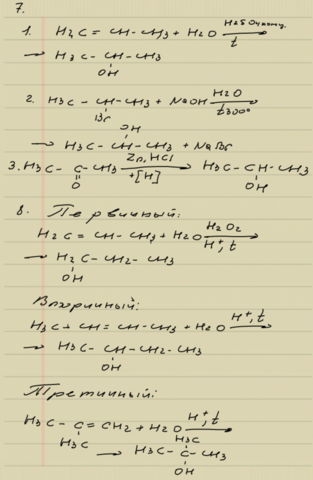 7.
1. H2C = CH-CH3 + H2O H2SO4 конц. t
→ H3C - CH-CH3
OH
2. H3C - CH-CH3 + NaOH H2O t300°
Br
OH
→ H3C - CH-CH3 + NaBr
3. H3C - C-CH3 Zn, HCl +[H] H3C-CH-CH3
O OH
8. Первичный:
H2C = CH-CH3 + H2O H2O2 H+, t
→ H2C - CH2-CH3
OH
Вторичный:
H3C + CH = CH-CH3 + H2O H+, t
→ H3C - CH-CH2-CH3
OH
Третичный:
H3C - C = CH2 + H2O H+, t
H3C H3C
→ H3C - C-CH3
OH